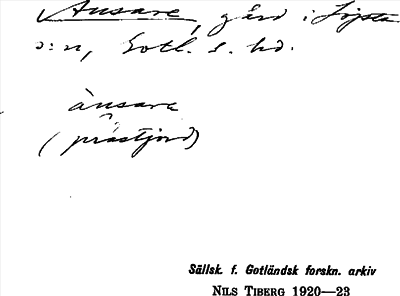 Ansare, gård i Lojsta
s:n, Gotl. s. hd.
ànsara
(prästjord)
Sällsk. f. Gotländsk forskn. arkiv
NILS TIBERG 1920—23